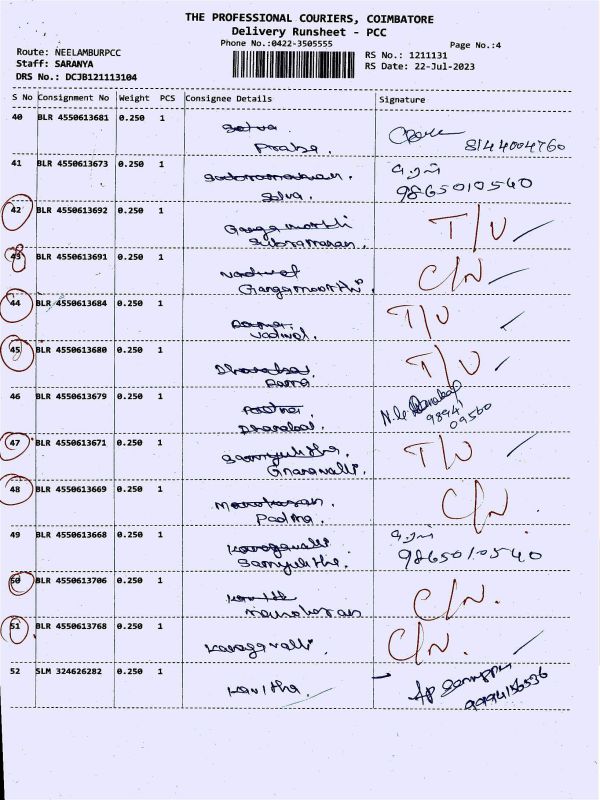 THE PROFESSIONAL COURIERS, COIMBATORE
Delivery Runsheet - PCC
Phone No.:0422-3505555
Page No.:4
Route: NEELAMBURPCC
RS No.: 1211131
Staff: SARANYA
RS Date: 22-Jul-2023
DRS No.: DCJB121113104
S No Consignment No Weight PCS Consignee Details Signature
40 BLR 4550613681 0.250 1
8144004760
41 BLR 4550613673 0.250 1
Selva.
9865010540
42 BLR 4550613692 0.250 1 T/U
Subramanian.
43 BLR 4550613691 0.250 1 C/N
Gangamoorthi
44 BLR 4550613684 0.250 1 T/U
Vadivel.
45 BLR 4550613680 0.250 1 T/U
Rama
46 BLR 4550613679 0.250 1
Dhanabal.
9894
09560
47 BLR 4550613671 0.250 1 T/U
Gnanavalli.
48 BLR 4550613669 0.250 1 C/N.
Manoharan.
Padma.
49 BLR 4550613668 0.250 1
9865010540
Samyuktha.
50 BLR 4550613706 0.250 1 C/N.
Manoharan
51 BLR 4550613768 0.250 1 C/N.
Kanagavalli.
52 SLM 324626282 0.250 1
Kavitha.